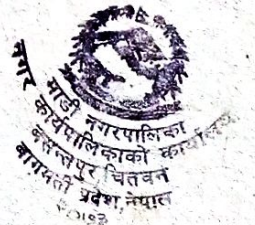 माडी नगरपालिका
नगर कार्यपालिकाको कार्यालय
बसन्तपुर चितवन
बागमती प्रदेश, नेपाल
२०७३